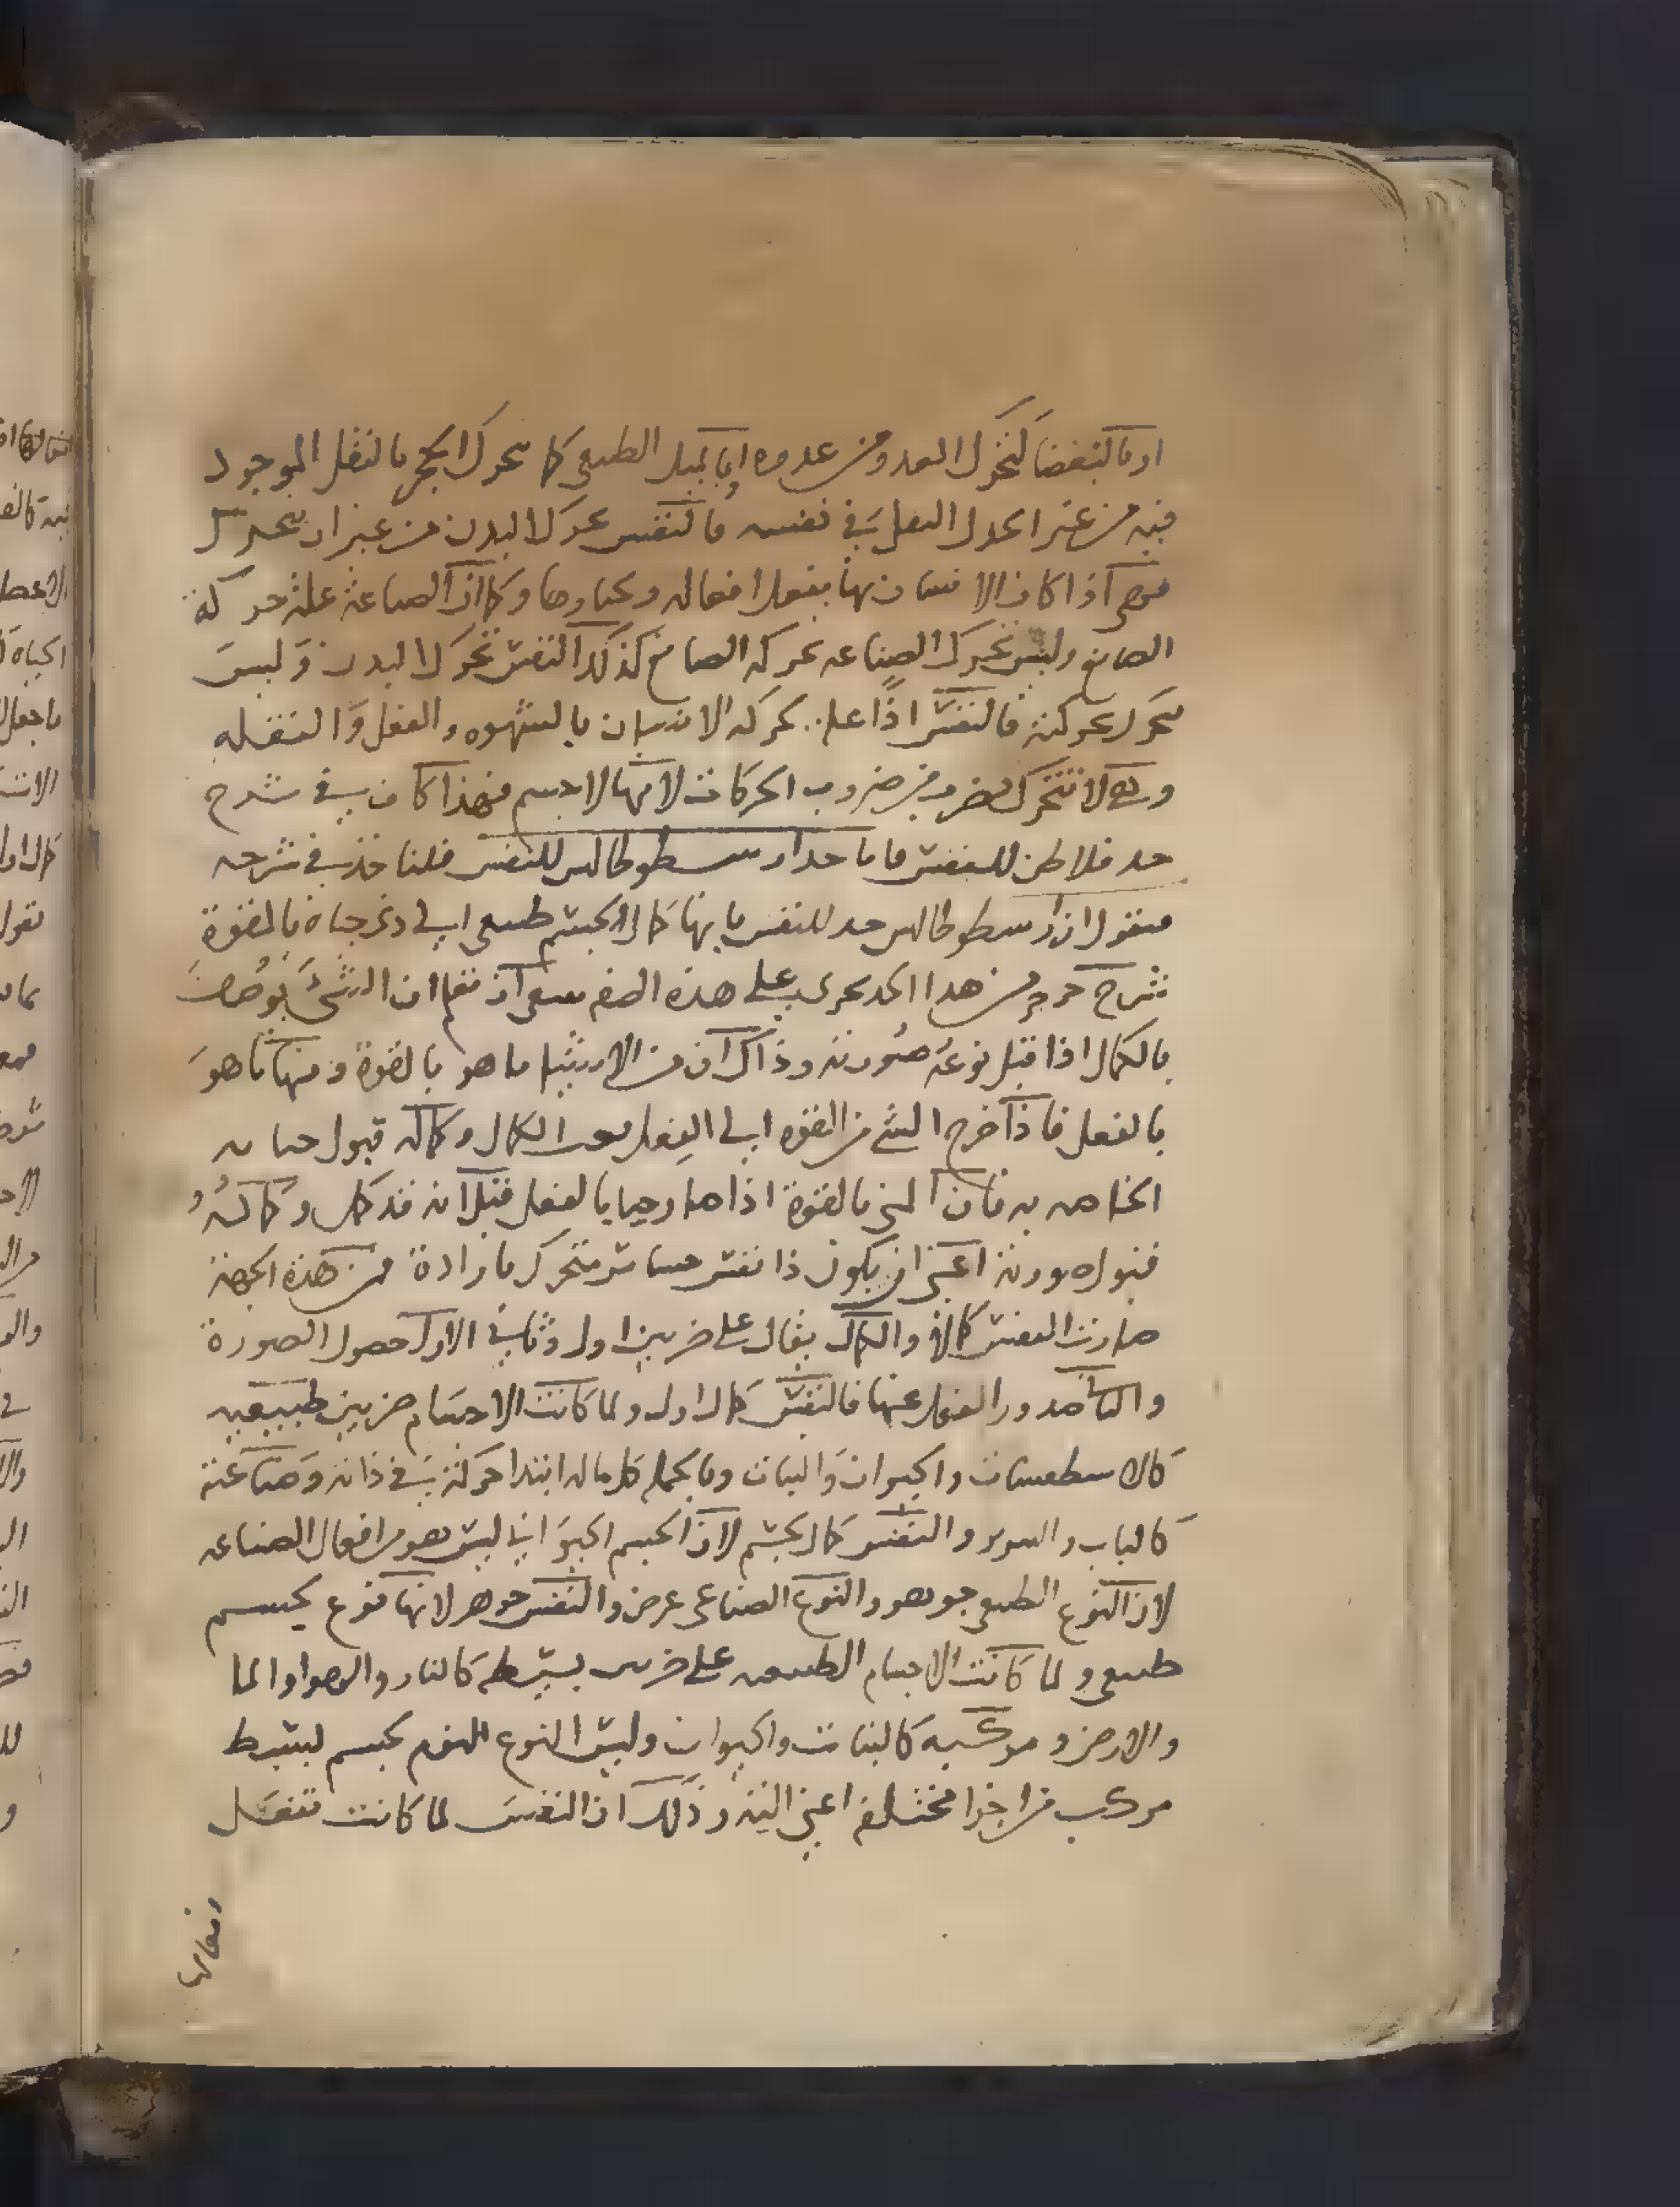 او بالبغضا كتحرك العدو من عدوه او بالميل الطبيعى كما يتحرك الحجر بالثقل الموجود
فيه من غير تحرك الثقل في نفسه فالنفس تحرك البدن من غير ان تتحرك
هى اذا كان الانسان بها يفعل افعاله ويختارها وكما ان الصناعة علة حركة
الصانع وليس تتحرك الصناعه بحركه الصانع كذلك النفس تحرك البدن وليس
تتحرك بحركته فالنفس اذا علة بحركه الانسان بالشهوه والعقل والنقله
وهى لا تتحرك بضرب من ضروب الحركات لانها لا جسم فهذا كاف في شرح
حد فلاطن للنفس فاما حد ارسطوطالس للنفس فلناخذ في شرحه
فنقول ان ارسطوطالس حد للنفس بانها كمال لجسم طبيعى الى ذى حياة بالقوة
شرح حرف من هذا الحد يجرى على هذه الصفه ينبغى ان تعلم ان الشئ يوصف
بالكمال اذا قبل نوعه صورته وذاك ان من الاشيا ما هو بالقوة ومنها ما هو
بالفعل فاذا خرج الشى من القوه الى الفعل الكمال وكماله قبول
الخاصه به فان المنى بالقوة اذا صار حيا بالفعل قيل انه قد كمل وكماله
قبول صورته اعنى ان يكون ذا نفس حساس متحرك بارادة فمن هذه الجهة
صارت النفس كمالا والكمال يقال على ضربين اول وثاني الاول حصول الصورة
والثانى صدور الفعل عنها فالنفس كمال اول ولما كانت الاجسام ضربين طبيعيه
كالاسطقسات والحيوان والنبات وبالجمله كل ما له ابتدا حركة في ذاته وصناعته
كالباب والسرير والنفس كمال لجسم لان الجسم الحيواني ليس هو من افعال الصناعه
لان النوع الطبيعى جوهر والنوع الصناعى عرض والنفس جوهر لانها نوع لجسم
طبيعى ولما كانت الاجسام الطبيعيه على ضربين بسيطه كالنار والهوا والما
والارض ومركبه كالنبات والحيوان وليس النوع الجسم بسيط
مركب من اجزا مختلفه اعنى اليه وذلك ان النفس لما كانت تفعل
افعالها